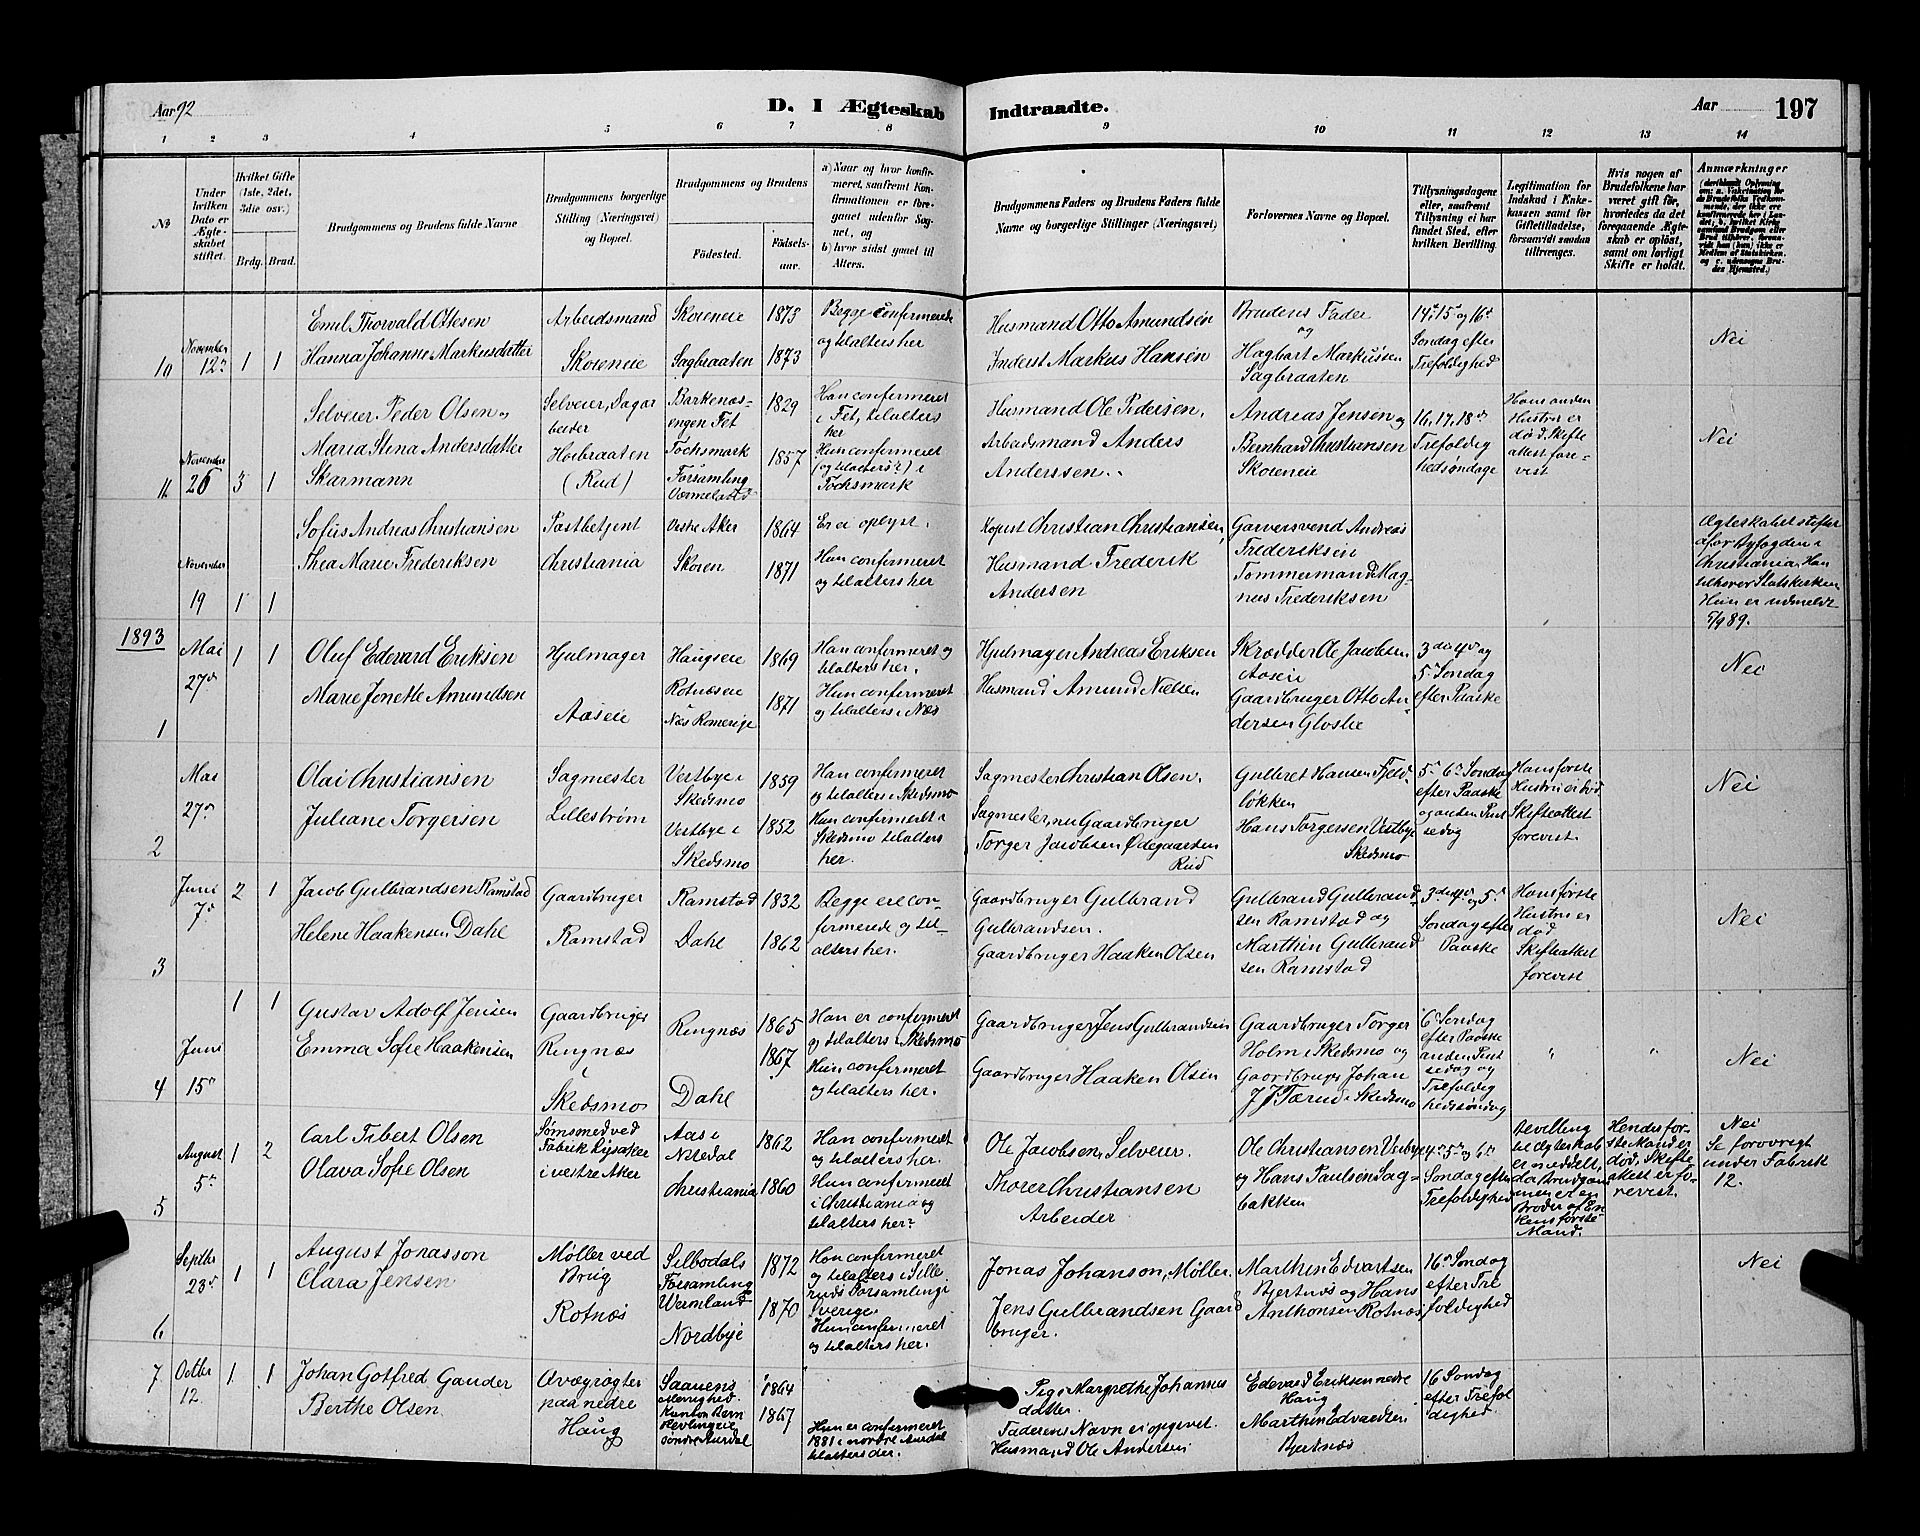 Aar 92
D. I Ægteskab Indtraadte.
Aar
197
1 2 3 4 5 6 7 8 9 10 11 12 13 14
No
Under hvilken Dato er Ægteskabet stiftet.
Hvilket Gifte (1ste, 2det, 3die osv.)
Brdg. Brud.
Brudgommens og Brudens fulde Navne
Brudgommens borgerlige Stilling (Næringsvei) og Bopæl.
Brudgommens og Brudens
Födested.
Födselsaar.
a) Naar og hvor konfirmeret, saafremt Konfirmationen er foregaaet udenfor Sognet, og
b) hvor sidst gaaet til Alters.
Brudgommens Faders og Brudens Faders fulde Navne og borgerlige Stillinger (Næringsvei)
Forlovernes Navne og Bopæl.
Tillysningsdagene eller, saafremt Tillysning ei har fundet Sted, efter hvilken Bevilling.
Legitimation for Indskud i Enkekassen samt for Giftetilladelse, forsaavidt saadan tiltrænges.
Hvis nogen af Brudefolkene har været gift för, hvorledes da det foregaaende Ægteskab er oplöst, samt om lovligt Skifte er holdt.
Anmærkninger
10
November 12te
1 1
Emil Thorvald Ottesen
Hanna Johanne Markusdatter
Arbeidsmand
Skoreneie
Skoreneie
Sagbraaten
1873
1873
Begge confirmerede
og tilalters her
Husmand Otto Amundsen
Inderst Markus Hansen
Brudens Fader
og
Hagbart Markussen
Sagbraaten
14, 15 og 16de
Søndag efter
Trefoldighed
Nei
11
November
26
3 1
Selveier Peder Olsen og
Maria Stina Andersdatter
Skarmann
Selveier, Dagar
beider
Hoibraaten
(Rud)
Barkenæs-
engen Fet
Tochsmark
Forsamling
Vermeland
1829
1857
Han confirmeret
i Fet, tilalters
her
Hun confirmeret
(og tilalters?) i
Tochsmark
Husmand Ole Pedersen,
Arbeidsmand Anders
Anderssen.
Andreas Jensen og
Bernhard Christiansen
Skoreneie
16, 17, 18de
Trefoldig
hedssøndage
Hans anden
Hustru er
død, Skifte
attest fore-
vist
Nei
November
19
1 1
Sofus Andreas Christiansen
Thea Marie Frederiksen
Postbetjent
Christiania
Vestre Aker
Skoren
1864
1871
Er ei oplyst.
Hun confirmeret
og tilalters her
Christian Christiansen,
Husmand Frederik
Andersen
Garversvend Andreas
Frederiksen
Tømmermand Mag-
nus Frederiksen
Ægteskabet stiftet
for Byfogden i
Christiania, Han
tilhører Statskirken
Hun er udmeldt
1893
1
Mai
27de
1 1
Oluf Edevard Eriksen
Marie Jonette Amundsen
Hjulmager
Aaseie
Haugseie
Rotnæseie
Næs Romerige
1869
1871
Han confirmeret og
tilalters her.
Hun confirmeret
og tilalters i Næs
Hjulmager Andreas Eriksen
Husmand Amund Nielsen
Skrædder Ole Jacobsen
Aaseie
Gaardbruger Otto An-
dersen Gloslie
3die, 4de og
5te Søndag
efter Paaske
Nei
2
Mai
27de
Olai Christiansen
Juliane Torgersen
Sagmester
Lillestrøm
Vestbye i
Skedsmo
Vestbye i
Skedsmo
1859
1852
Han confirmeret
og tilalters i Skedsmo
Hun confirmeret i
Skedsmo tilalters
her.
Sagmester Christian Olsen.
Sagmester, nu Gaardbruger
Torger Jacobsen Ødegaarden
Rud
Gulleret Hansen Fjeld-
løkken
Hans Torgersen Vestbye
Skedsmo
5te, 6te Søndag
efter Paaske
og anden Pint
sedag
Hans første
Hustru er død
Skifteattest
forevist.
Nei
3
Juni
7de
2 1
Jacob Gulbrandsen Ramstad
Helene Haakensen Dahl
Gaardbruger
Ramstad
Ramstad
Dahl
1832
1862
Begge ere con-
firmerede og til-
alters her.
Gaardbruger Gulbrand
Gulbrandsen.
Gaardbruger Haaken Olsen
Gulbrand Gulbrand-
sen Ramstad og
Marthin Gulbrand
sen Ramstad
3die, 4de og 5te
Søndag efter
Paaske
Hans første
Hustru er
død
Skifteattest
forevist
Nei
4
Juni
15de
1 1
Gustav Adolf Jensen
Emma Sofie Haakensen
Gaardbruger
Ringnæs
i
Skedsmo
Ringnæs
Dahl
1865
1867
Han er confirmeret
og tilalters i Skedsmo
Hun confirmeret
og tilalters her.
Gaardbruger Jens Gulbrandsen
Gaardbruger Haaken Olsen
Gaardbruger Torger
Holm i Skedsmo og
Gaardbruger Johan
J J Tærud i Skedsmo
6te Søndag
efter Paaske
anden Pint
sedag og
Trefoldig
hedssøndag
"
"
Nei
5
August
5te
1 2
Carl Tibert Olsen
Olava Sofie Olsen
Sømsmed ved
Fabrik Lysaker
i vestre Aker
Aas i
Nitedal
Christiania
1862
1860
Han confirmeret
og tilalters her.
Hun confirmeret
i Christiania og
tilalters her.
Ole Jacobsen, Selveier.
Thorer Christiansen
Arbeider
Ole Christiansen Vestbye
og Hans Paulsen Sag-
bakken
4de, 5te og 6te
Søndag efter
Trefoldighed
Bevilling
til Ægteskab
er meddelt,
da Brudgom
men er en
Broder af En
kens første
Mand.
Hendes før-
ste Mand er
død. Skifte
attest er fo-
revist.
Nei
Se forøvrigt
under Rubrik
12.
6
Septbr
23de
1 1
August Jonasson
Clara Jensen
Møller ved
Brug
Rotnæs
Silbodals
Forsamling
Wermland
Nordbye
1872
1870
Han confirmeret
og tilalters i Sille
ruds Forsamling i
Sverige.
Hun confirmeret
og tilalters her.
Jonas Johanson, Møller.
Jens Gulbrandsen Gaard
bruger.
Marthin Edvartsen
Bjertnæs og Hans
Anthonsen Rotnæs
16de Søndag
efter Tre
foldighed
Nei
7
Octbr
12
1 1
Johan Gotfred Gander
Berthe Olsen
Qvægrøgter
paa nedre
Haug
Saanens
Menighed
Kanton Bern
Revlingeie
søndre Aurdal
1864
1867
Hun er confirmeret
1881 i nordre Aurdal
tilalters der.
Pige Margrethe Johannes
datter.
Faderens Navn ei opgivet.
Husmand Ole Andersen
Edevard Eriksen nedre
Haug
Marthin Edvardsen
Bjertnæs
16 Søndag
efter Trefol
dighed.